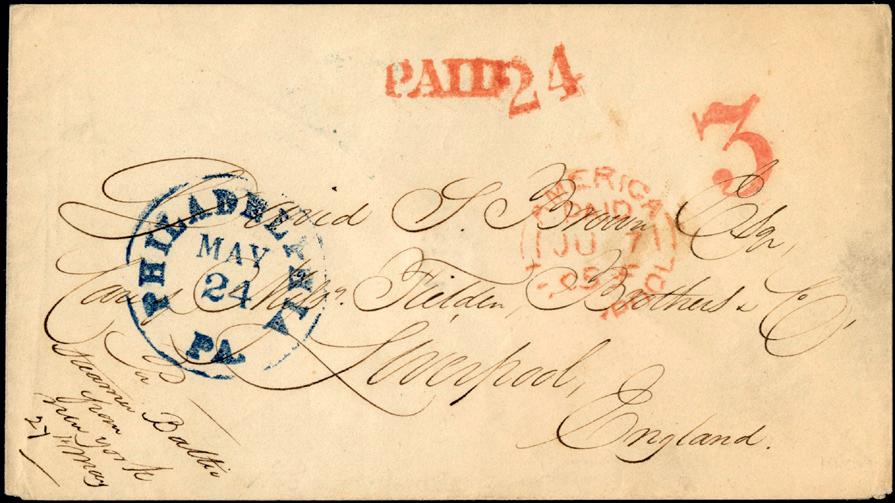 PAID 24
3
PHILADELPHIA
MAY
24
PA.
AMERICA
PAID
JU 7
LIVERPOOL
David S. Brown Esqr,
Care Messrs. Fielden, Brothers & Co
Liverpool,
England.
Pr
Steamer Baltic
from
New York
27th May